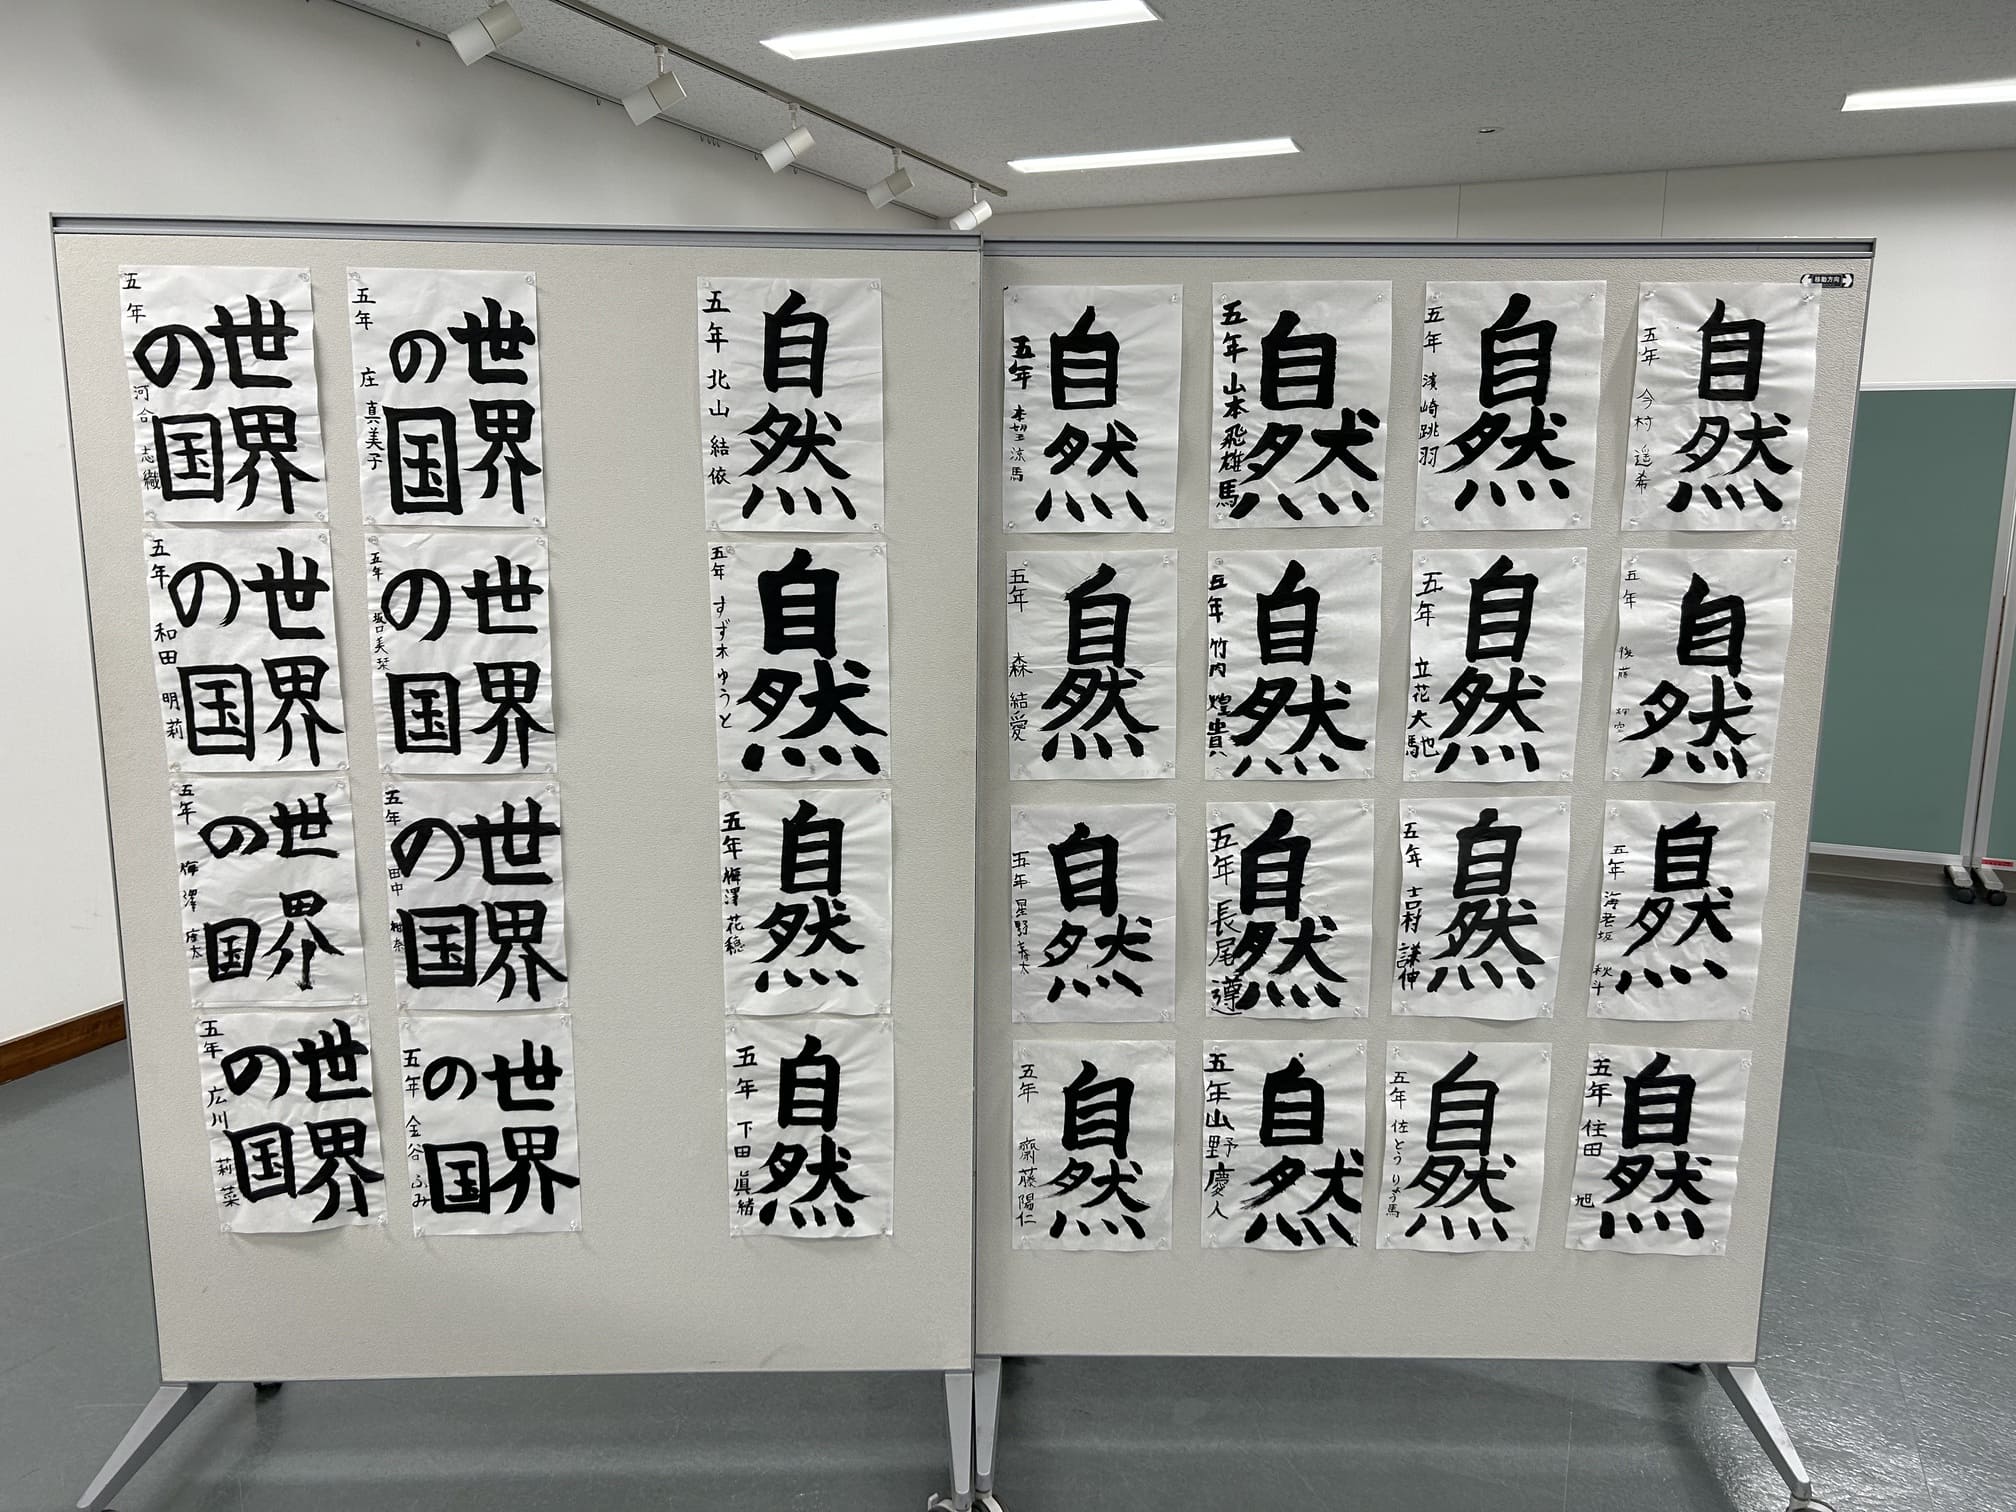 移動方向
自然
五年 今村 遥希
自然
五年 濱崎跳羽
自然
五年 山本飛雄馬
自然
五年 李望 涼馬
自然
五年 後藤
自然
五年 立花大馳
自然
五年 竹内 煌貴
自然
五年 森 結愛
自然
五年 海老坂 秋斗
自然
五年 吉村 謙伸
自然
五年 長尾 遵
自然
五年 星野 春太
自然
五年 住田 旭
自然
五年 佐とう りょう馬
自然
五年 山野 慶人
自然
五年 齋藤 陽仁
自然
五年 北山 結依
自然
五年 すず木 ゆうと
自然
五年 梅澤 花穂
自然
五年 下田 眞緒
世界
の国
五年 庄 真美子
世界
の国
五年 河合 志織
世界
の国
五年 坂口美栞
世界
の国
五年 和田 明莉
世界
の国
五年 田中 柑奈
世界
の国
五年 梅澤
世界
の国
五年 金谷 ふみ
世界
の国
五年 広川 莉菜